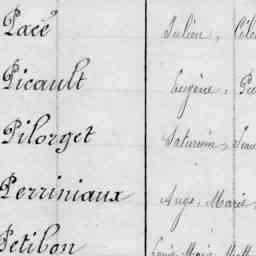 Pacé Julien,
Picault Eugène,
Pilorget Saturnin,
Perriniaux Ange, Marie
Petibon Louis, Marie,